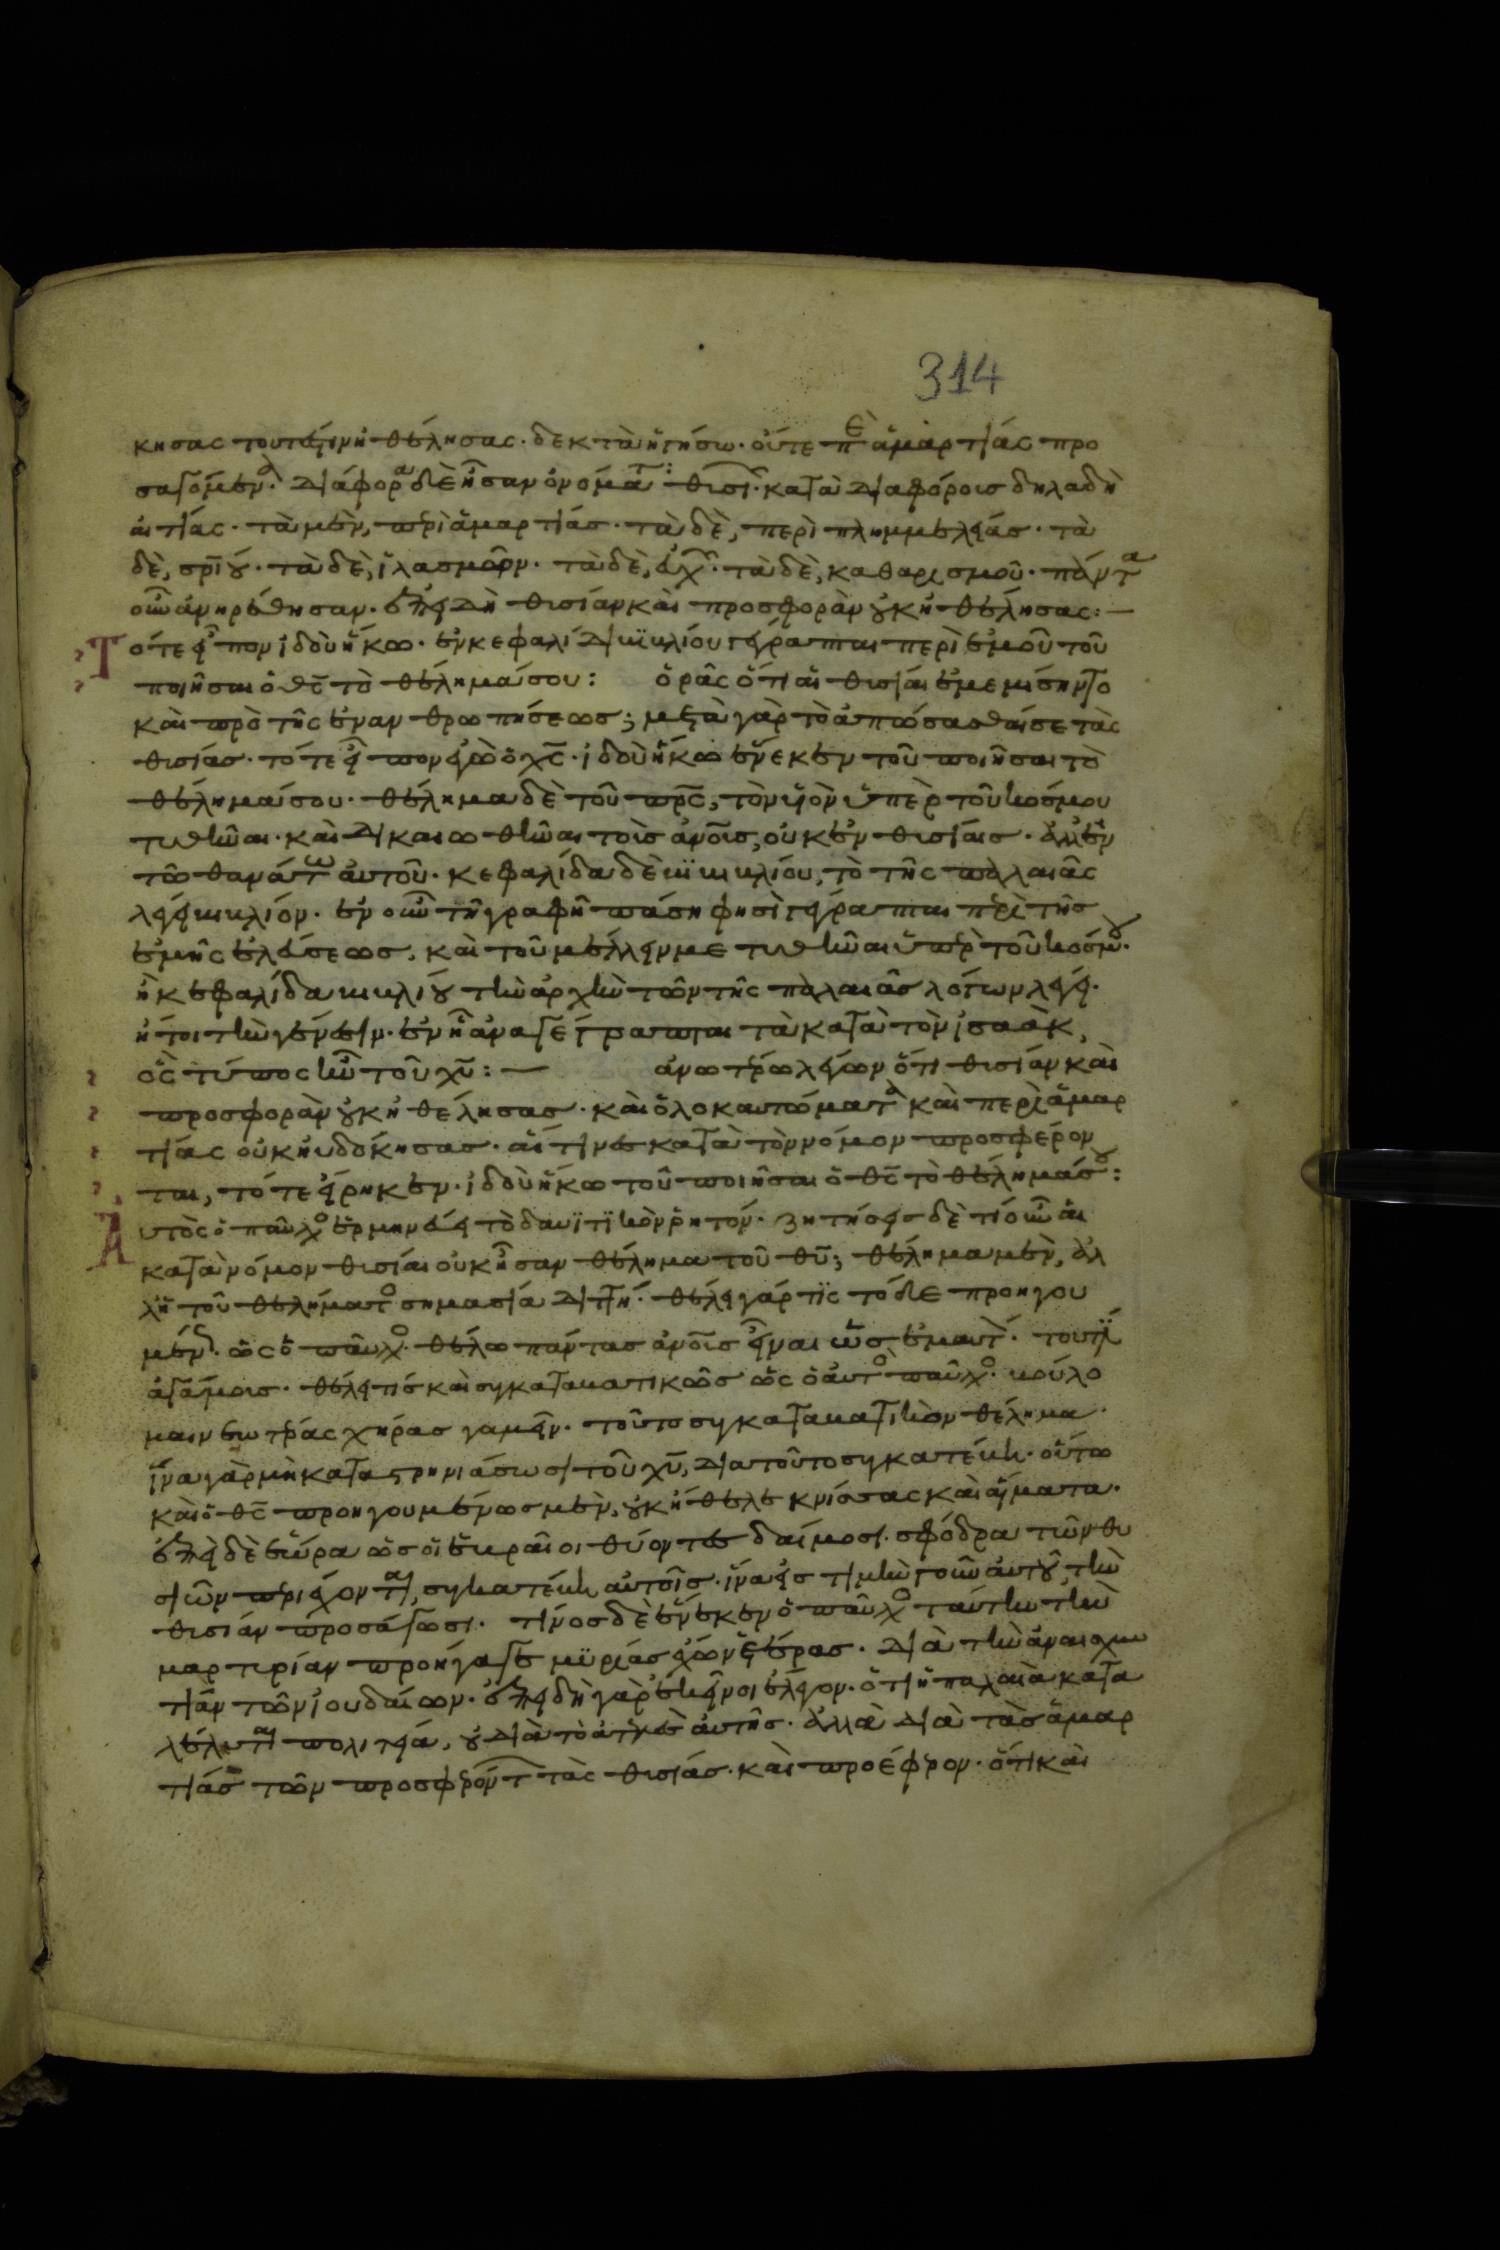 314
κησας τουτέστιν ἠθέλησας· δεκτὰ ἡγήσω· οὔτε πε ἁμαρτίας προ
σαγόμεν· διάφορα δὲ ἦσαν ὀνόματ θυσι· κατὰ διαφόροις δηλαδὴ
αἰτίας· τὰ μὲν, περὶ ἁμαρτίας· τὰ δὲ, περὶ πλημμελείας· τὰ
δὲ, σρίου· τὰ δὲ, ἱλασμοῦ· τὰ δὲ, εὐχ· τὰ δὲ, καθαρισμοῦ· πάντα
οὖν ἀνηρέθησαν· ἐπειδὴ θυσίαν καὶ προσφορὰν οὐκ ἠθέλησας:—
Τότε εἶπον ἰδοὺ ἥκω· ἐν κεφαλίδι βιβλίου γέγραπται περὶ ἐμοῦ τοῦ
ποιῆσαι ὁ θς τὸ θέλημά σου: ὁρᾷς ὅτι αἱ θυσίαι ἐμεμίσηντο
καὶ πρὸ τῆς ἐνανθρωπήσεως; μετὰ γὰρ τὸ ἀπώσασθαί σε τὰς
θυσίας· τότε εἶπον ἐγὼ ὁ χς· ἰδοὺ ἥκω ἕνεκεν τοῦ ποιῆσαι τὸ
θέλημά σου· θέλημα δὲ τοῦ πρς, τὸν υἱὸν ὑπὲρ τοῦ κόσμου
τυθῆναι· καὶ δικαιωθῆναι τοὺς ἀνοις, οὐκ ἐν θυσίαις· ἀλλ' ἐν
τῶ θανάτω αὐτοῦ· κεφαλίδα δὲ βιβλίου, τὸ τῆς παλαιᾶς
λέγει βιβλίον· ἐν οὖν τῇ γραφῇ πάσῃ φησὶ γέγραπται περὶ τῆς
ἐμῆς ἐλεύσεως. καὶ τοῦ μέλλειν με τυθῆναι ὑπὲρ τοῦ κόσμου·
ἢ κεφαλίδα βιβλίου τὴν ἀρχὴν τῶν τῆς παλαιᾶς λόγων λέγει·
ἤτοι τὴν γένεσιν· ἐν ἧ ἀναγέγραπται τὰ κατὰ τὸν ἰσαὰκ,
ὃς τύπος ἦν τοῦ χυ:— ἀνωτέρω λέγων ὅτι θυσίαν καὶ
προσφορὰν οὐκ ἠθέλησας· καὶ ὁλοκαυτώματα καὶ περὶ ἁμαρ
τίας οὐκ ηὐδόκησας· αἵτινες κατὰ τὸν νόμον προσφέρον
ται, τότε εἴρηκεν· ἰδοὺ ἥκω τοῦ ποιῆσαι ὁ θς τὸ θέλημά σου:
Αυτὸς ὁ παῦλος ἑρμηνεύει τὸ δαυϊτϊκὸν ῥητόν· ζητήσεις δὲ τί οὖν αἱ
κατὰ νόμον θυσίαι οὐκ ἦσαν θέλημα τοῦ θυ; θέλημα μὲν, ἀλ
λ' ἡ τοῦ θελήματος σημασία διττή· θέλει γάρ τϊς τόδε προηγου
μένως· ὡς ὁ παῦλος· θέλω πάντας ἀνοις εἶναι ὡς ἐμαυτ· τουτέστιν
ἀγάμοις· θέλει τίς καὶ συγκαταβατικῶς ὡς ὁ αὐτὸς παῦλος· βούλο
μαι νεωτέρας χήρας γαμεῖν· τοῦτο συγκαταβατικὸν θέλημα·
ἵνα γὰρ μὴ καταστρηνιάσωσι τοῦ χυ, διατοῦτο συγκατέβη· οὕτω
καὶ ὁ θς προηγουμένως μὲν, οὐκ ἤθελε κνίσσας καὶ αἵματα·
ἐπεὶ δὲ ἑώρα ὡς οἱ ἑβραῖοι θύοντες δαίμοσι· σφόδρα τῶν θυ
σιῶν περιέχονται, συγκατέβη αὐτοῖς· ἵνα εἰς τιμὴν γοῦν αὐτοῦ, τὴν
θυσίαν προσάγωσι· τίνος δὲ ἕνεκεν ὁ παῦλος ταύτην τὴν
μαρτυρίαν προήγαγε μϋρίας ἔχων ἑτέρας· διὰ τὴν ἀναισχυν
τίαν τῶν ἰουδαίων· ἐπειδὴ γὰρ ἐκεῖνοι ἔλεγον· ὅτι ἡ παλαιὰ κατα
λέλυται πολιτεία, οὐ διὰ τὸ ἀτελὲς αὐτῆς· ἀλλὰ διὰ τὰς ἁμαρ
τίας τῶν προσφερόντων τὰς θυσίας· καὶ προέφερον· ὅτι καὶ